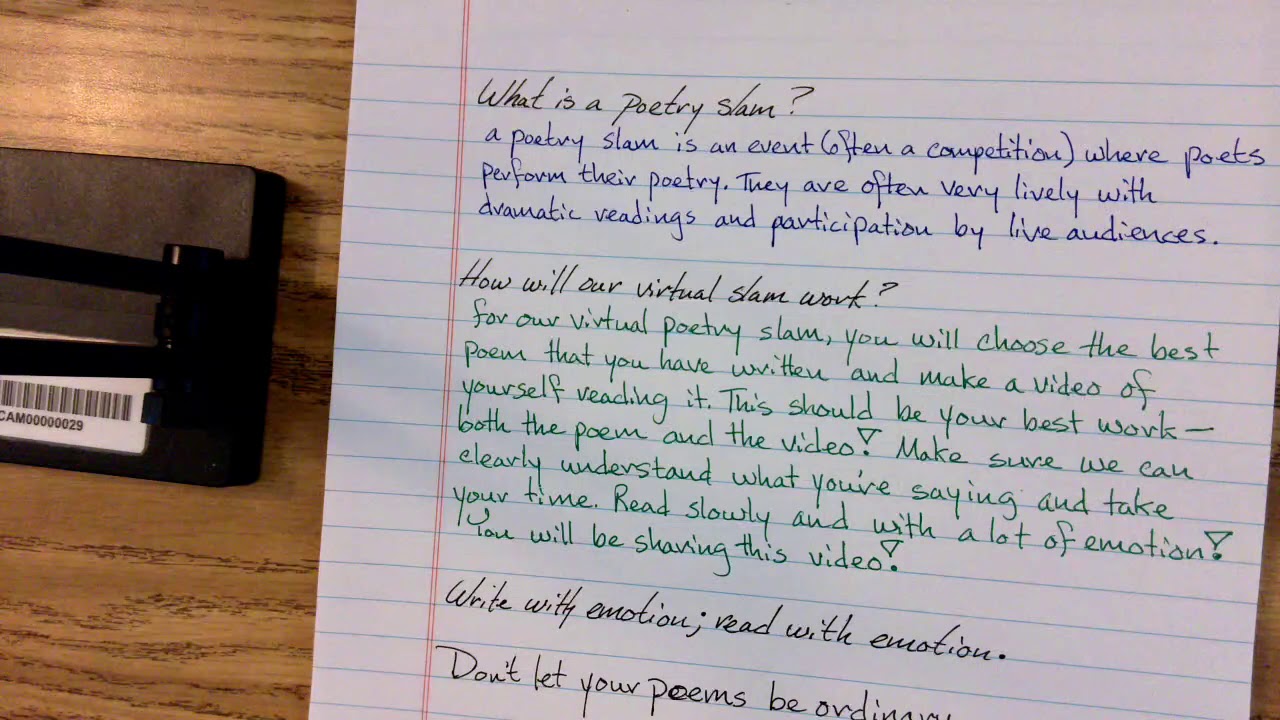 What is a Poetry Slam?
a poetry slam is an event (often a competition) where poets
perform their poetry. They are often very lively with
dramatic readings and participation by live audiences.
How will our virtual slam work?
for our virtual poetry slam, you will choose the best
poem that you have written and make a video of
yourself reading it. This should be your best work—
both the poem and the video! Make sure we can
clearly understand what you're saying and take
your time. Read slowly and with a lot of emotion!
You will be sharing this video!
Write with emotion; read with emotion.
Don't let your poems be ordinary
CAM00000029